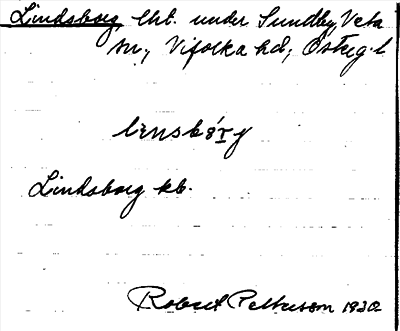 Lindsborg, lht. under Sundby, Veta
sn, Vifolka hd, Östergl.
Lindsborg kb.
Robert Petterson 1930